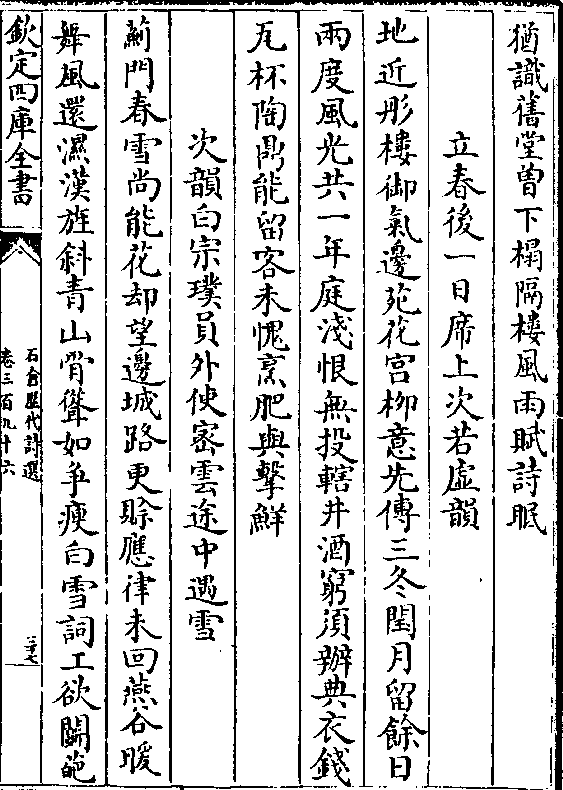 猶識舊堂曽下榻隔樓風雨賦詩眠
立春後一日席上次若虚韻
地近彤樓御氣邊苑花宫栁意先傳三冬閏月留餘日
兩度風光共一年庭淺恨無投轄井酒窮須辦典衣錢
瓦杯陶鼎能留客未愧烹肥與擊鮮
次韻白宗璞員外使宻雲途中遇雪
薊門春雪尚能花却望邊城路更賖應律未回燕谷暖
舞風還濕漢旌斜青山骨聳如爭瘦白雪詞工欲鬭葩
欽定四庫全書
石倉歷代詩選
卷三百九十六
三十七